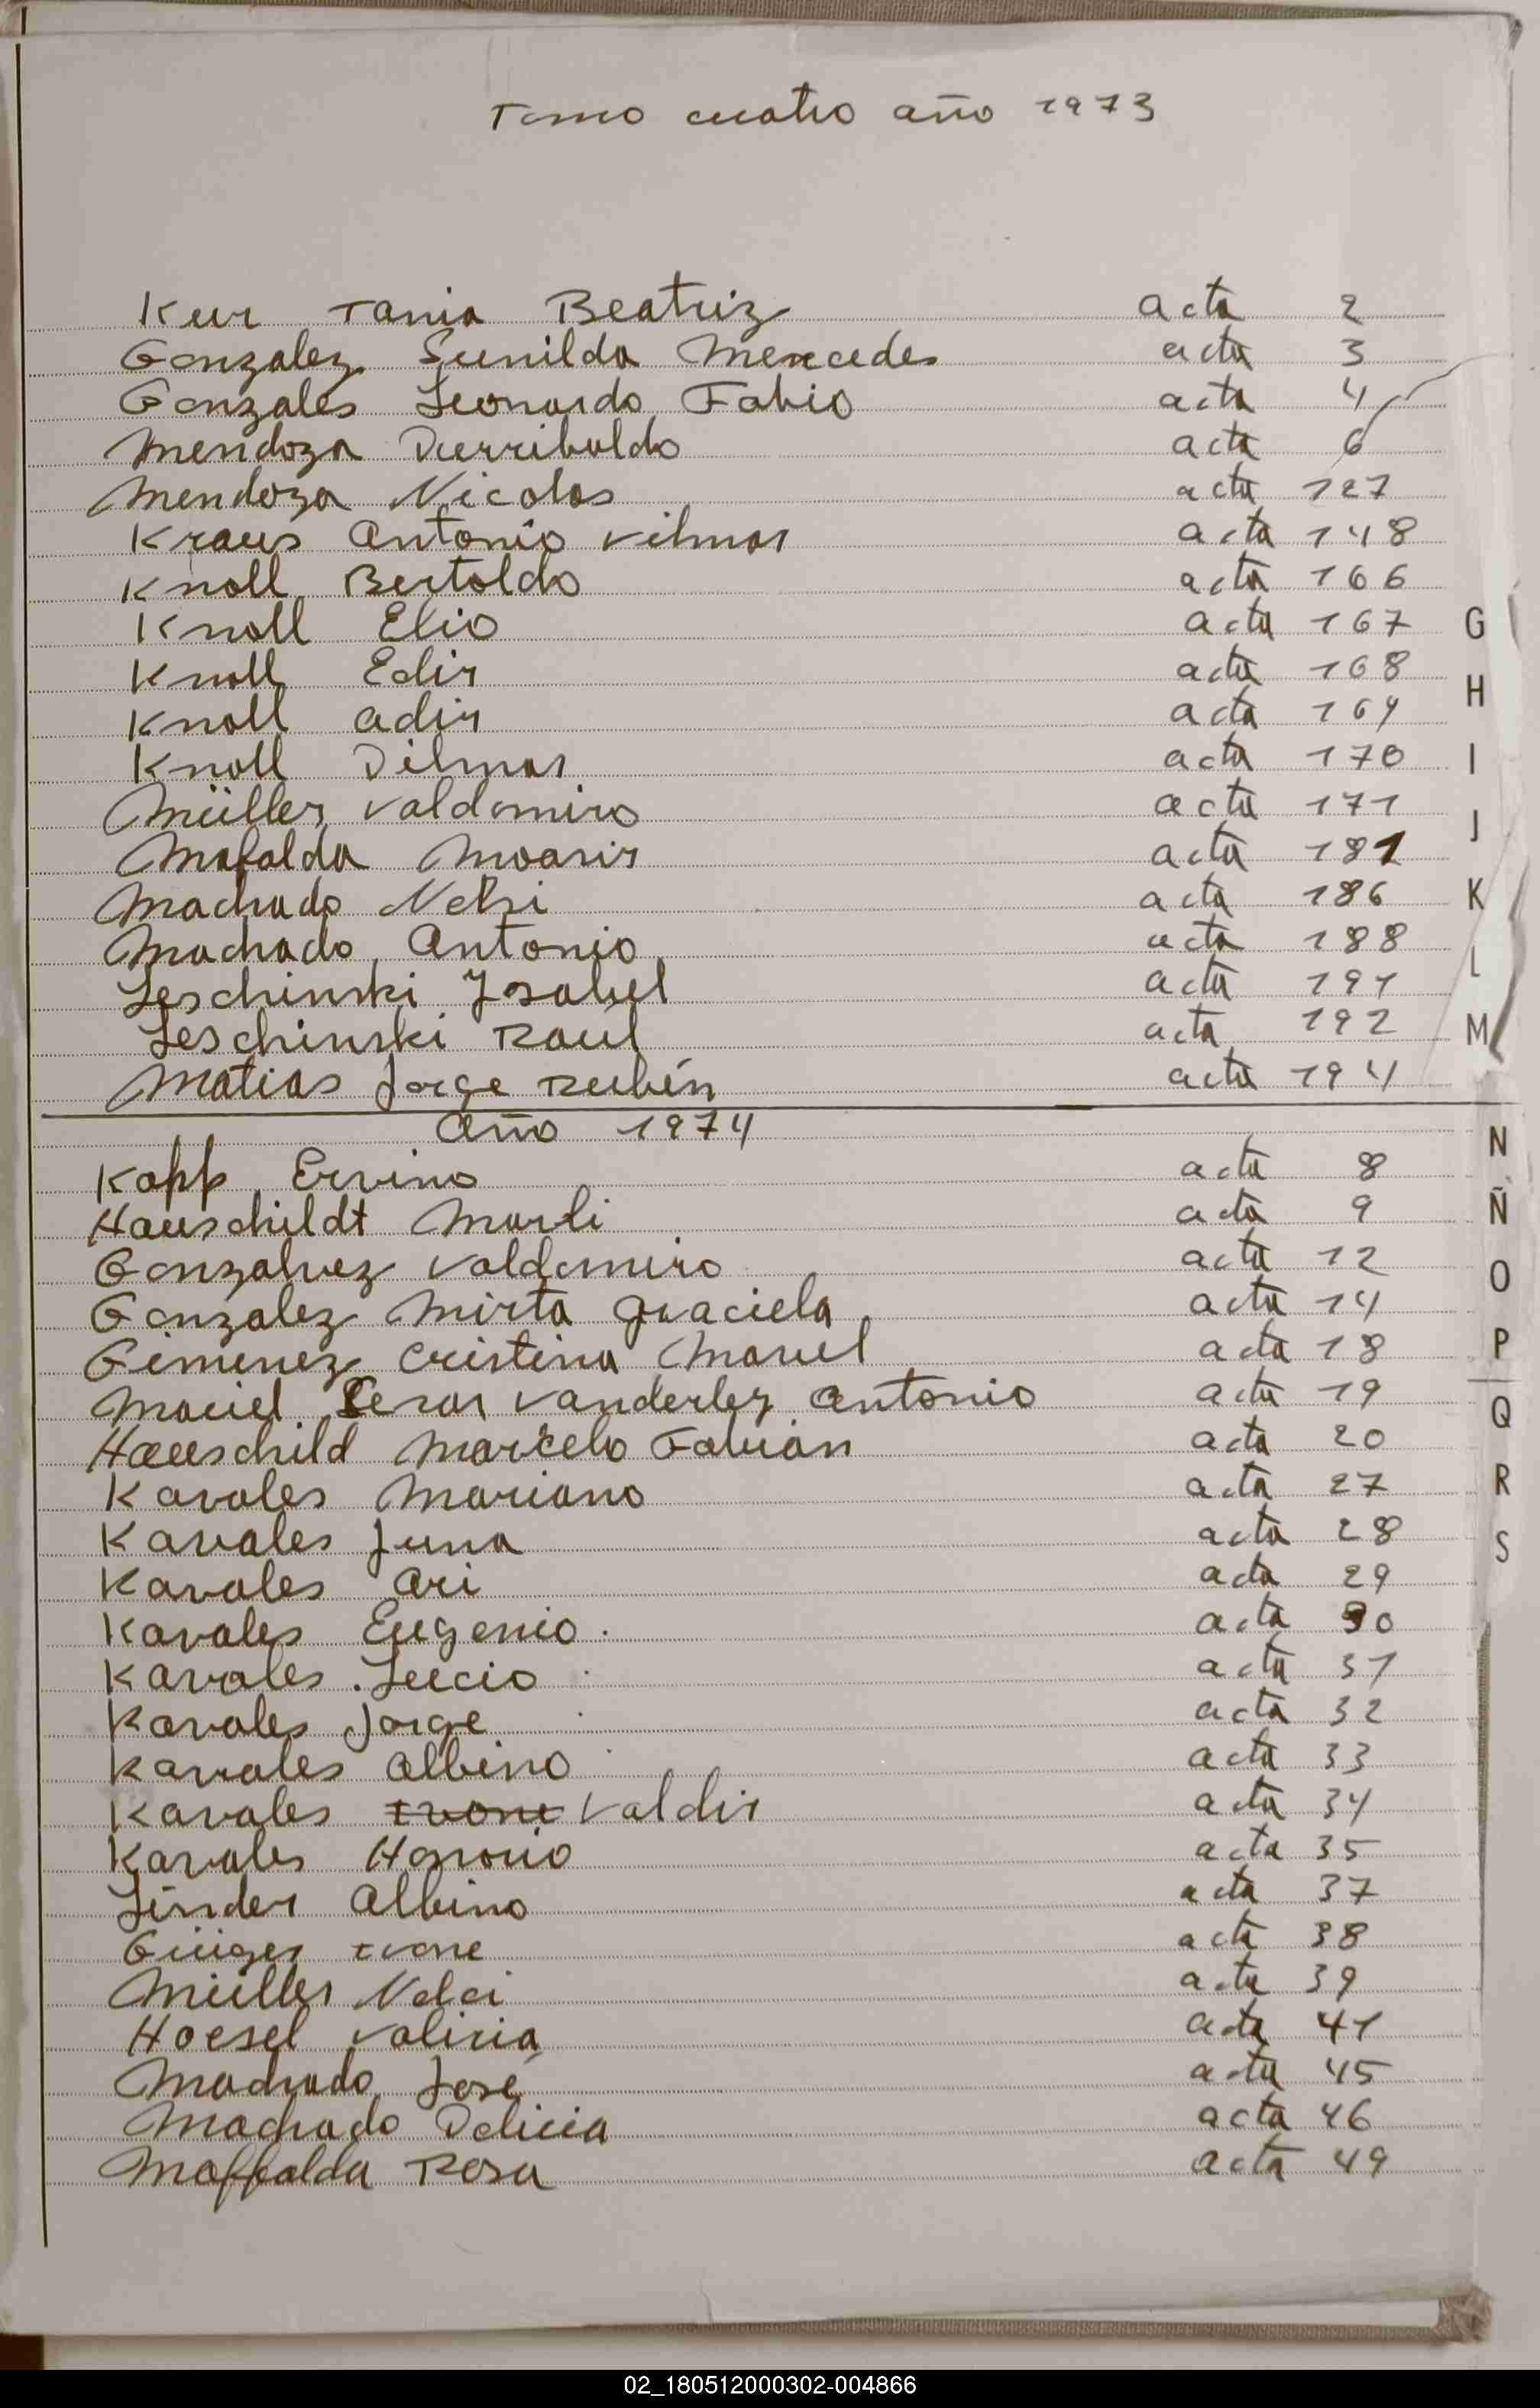 Tomo cuatro año 1973
Kur Tania Beatriz acta 2
Gonzalez Sunilda Mercedes acta 3
Gonzales Leonardo Fabio acta 4
Mendoza Durribaldo acta 6
Mendoza Nicolas acta 127
Kraus Antonio Vilmar acta 148
Knoll Bertoldo acta 166
Knoll Elio acta 167
Knoll Edir acta 168
Knoll Adir acta 169
Knoll Dilmar acta 170
Müller Valdomiro acta 171
Mafalda Moasir acta 181
Machado Nelsi acta 186
Machado Antonio acta 188
Leschinski Ysabel acta 191
Leschinski Raul acta 192
Matias Jorge Rubén acta 194
Año 1974
Kopp Ervino acta 8
Hauschildt Marli acta 9
Gonzalvez Valdomiro acta 12
Gonzalez Mirta Graciela acta 14
Gimenez Cristina Mavel acta 18
Maciel Cezar Vanderley Antonio acta 19
Hauschild Marcelo Fabian acta 20
Kavales Mariano acta 27
Kavales Juna acta 28
Kavales Ari acta 29
Kavales Eugenio acta 30
Kavales Lucio acta 31
Kavales Jorge acta 32
Kavales Albino acta 33
Kavales Ivone Valdir acta 34
Kavales Honorio acta 35
Linder Albino acta 37
Ivone acta 38
Müller Nelci acta 39
Hoesel Valiria acta 41
Machado José acta 45
Machado Delicia acta 46
Maffalda Rosa acta 49
G
H
I
J
K
L
M
N
Ñ
O
P
Q
R
S
02_180512000302-004866